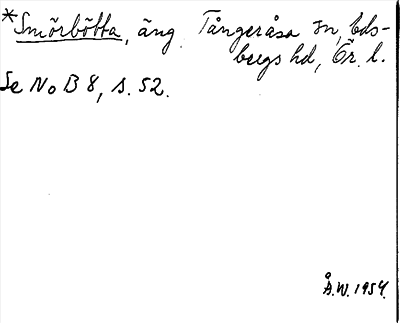 *Smörbötta, äng. Tångeråsa sn, Eds-
bergs hd, Ör. l.
Se No B 8, s. 52.
Å.W. 1954.